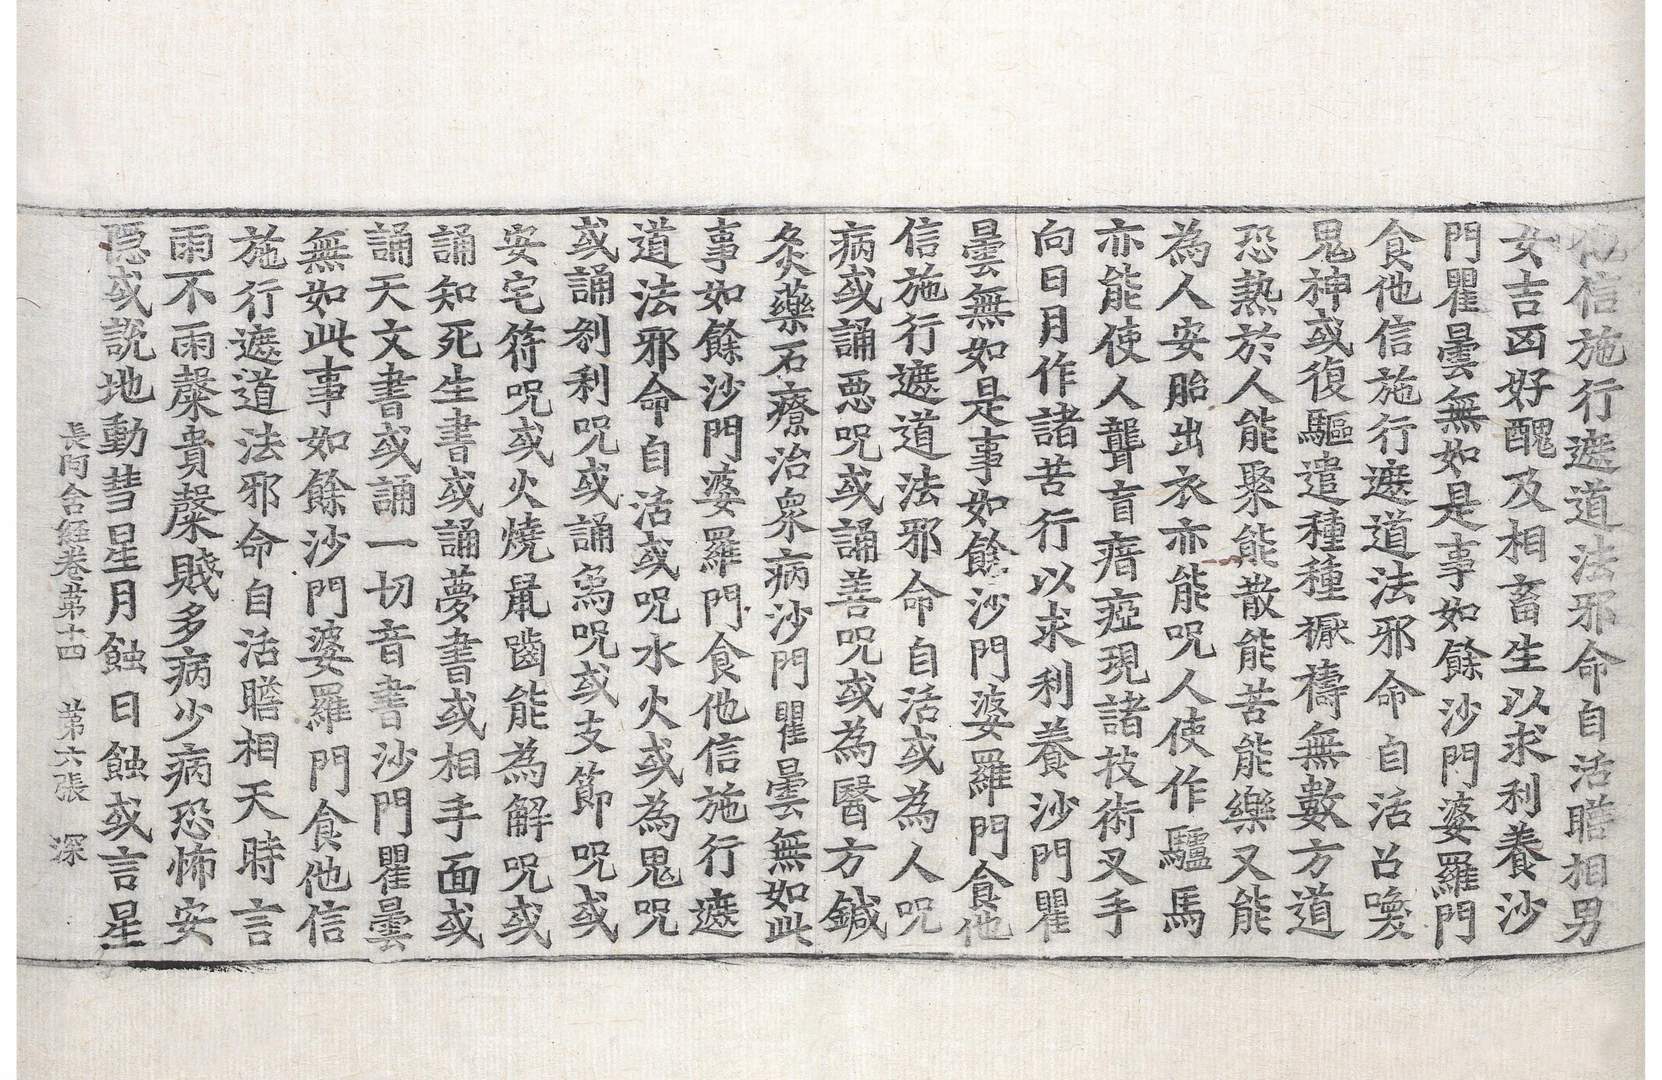 他信施行遮道法邪命自活瞻相男
女吉凶好醜及相畜生以求利養沙
門瞿曇無如是事如餘沙門婆羅門
食他信施行遮道法邪命自活召喚
鬼神或復驅遣種種𤢌禱無數方道
恐熱於人能聚能散能苦能樂又能
為人安胎出衣亦能呪人使作驢馬
亦能使人聾盲瘖瘂現諸技術叉手
向日月作諸苦行以求利養沙門瞿
曇無如是事如餘沙門婆羅門食他
信施行遮道法邪命自活或為人呪
病或誦惡呪或誦善呪或為醫方鍼
灸藥石療治衆病沙門瞿曇無如此
事如餘沙門婆羅門食他信施行遮
道法邪命自活或呪水火或為鬼呪
或誦剎利呪或誦鳥呪或支節呪或
安宅符呪或火燒鼠嚙能為解呪或
誦知死生書或誦夢書或相手面或
誦天文書或誦一切音書沙門瞿曇
無如此事如餘沙門婆羅門食他信
施行遮道法邪命自活瞻相天時言
雨不雨穀貴穀賤多病少病恐怖安
隱或說地動彗星月蝕日蝕或言星
長阿含經卷第十四 第六張 深